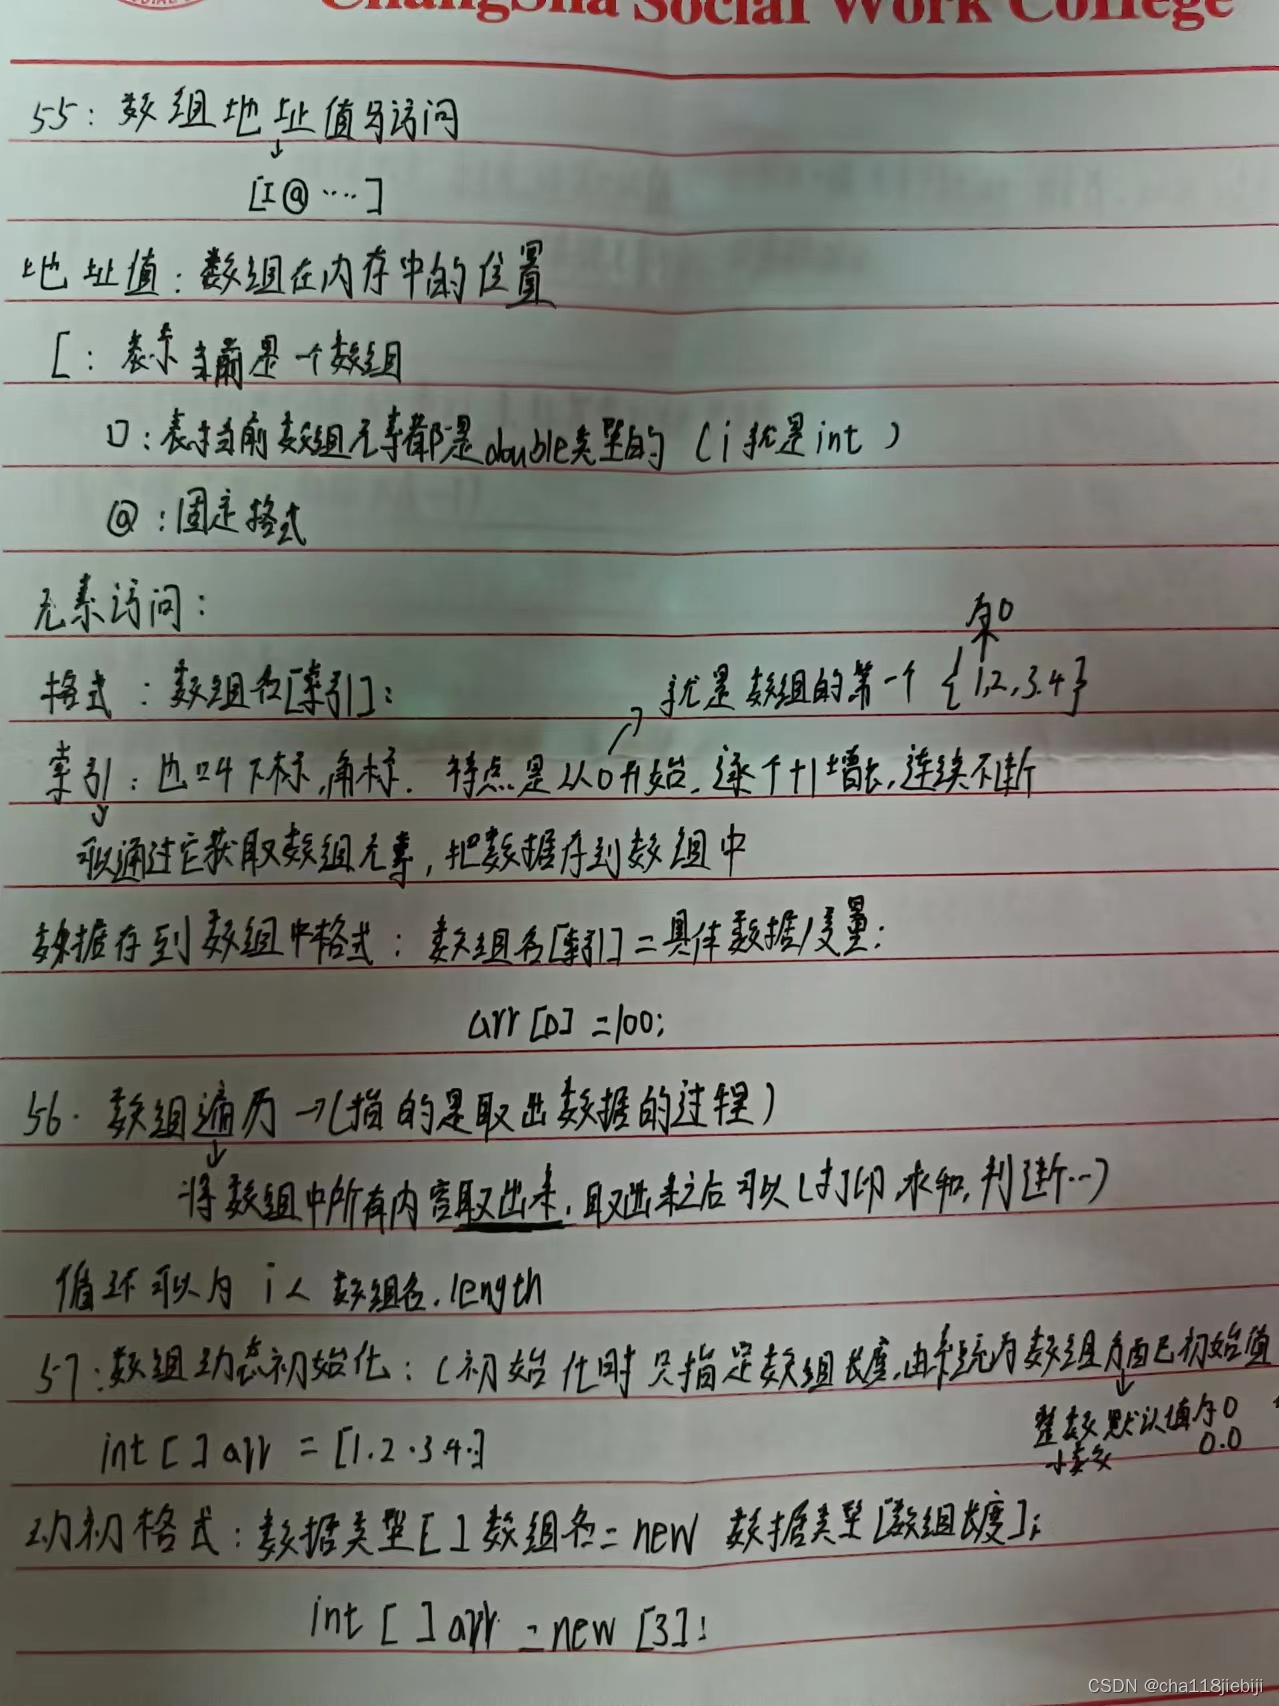 ChangSha Social Work College
55：数组地址值与访问
[I@····]
地址值：数组在内存中的位置
[：表示当前是一个数组
D：表示当前数组元素都是double类型的（i就是int）
@：固定格式
元素访问：
为0
格式：数组名[索引]；
就是数组的第一个 {1,2,3.4}
索引：也叫下标,角标. 特点是从0开始,逐个+1增长,连续不断
可以通过它获取数组元素,把数据存到数组中
数据存到数组中格式：数组名[索引]=具体数据/变量;
arr[0]=100;
56. 数组遍历→(指的是取出数据的过程)
将数组中所有内容取出来,取出来之后可以(打印,求和,判断···)
循环可以为 i< 数组名.length
57：数组动态初始化：(初始化时只指定数组长度,由系统为数组方面已初始值
整数默认值为0
int[]arr = [1.2.3.4.]
小数 0.0
动初格式：数据类型[]数组名=new 数据类型[数组长度];
int[]arr =new[3];
CSDN @cha118jiebiji